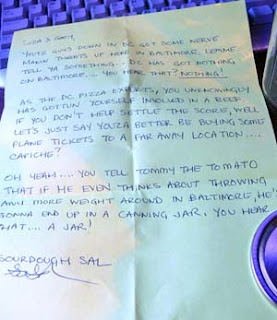 & Gary,
YOUSE GUYS DOWN IN DC GOT SOME NERVE
MAKIN' THREATS UP HERE IN BALTIMORE. LEMME
TELL YA SOMETHING... DC HAS GOT NOTHING
ON BALTIMORE.... YOU HEAR THAT? NOTHING!
AS THE DC PIZZA EXPERTS, YOU UNKNOWINGLY
HAS GOTTUN YOURSELF INVOLVED IN A BEEF.
IF YOU DON'T HELP SETTLE THE SCORE, WELL
LET'S JUST SAY YOU'Z BETTER BE BUYING SOME
PLANE TICKETS TO A FAR AWAY LOCATION....
CAPICHE?
OH YEAH.... YOU TELL TOMMY THE TOMATO
THAT IF HE EVEN THINKS ABOUT THROWING
ANY MORE WEIGHT AROUND IN BALTIMORE, HE'S
GONNA END UP IN A CANNING JAR, YOU HEAR
THAT.... A JAR!
SOURDOUGH SAL